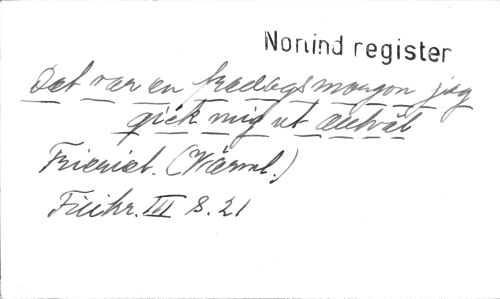 Norlind register
Det var en fredagsmorgon jag
gick mig ut allväl
Frieriet. (Värml.)
Filikr. III S. 21